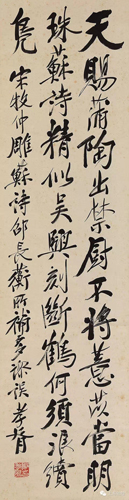 天賜蒲陶出禁厨不將薏苡當明
珠蘇詩精似吳興刻斷鶴何須浪續
鳧
宋牧仲雕蘇詩邵長蘅所補多謬誤 孝胥